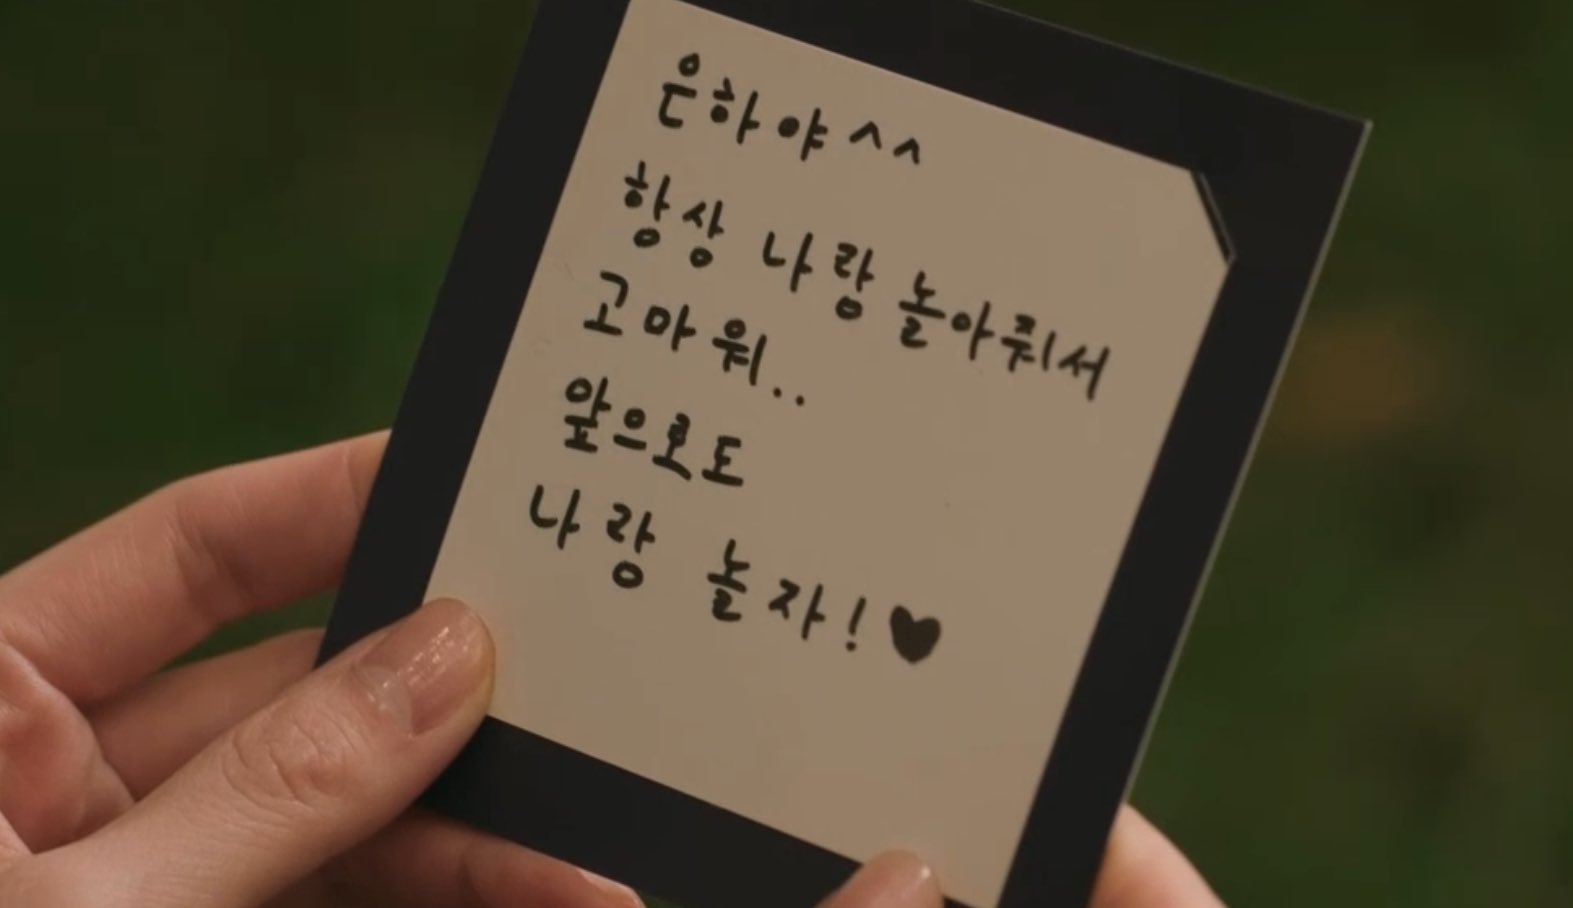 은하야^^
항상 나랑 놀아줘서
고마워..
앞으로도
나랑 놀자!♥